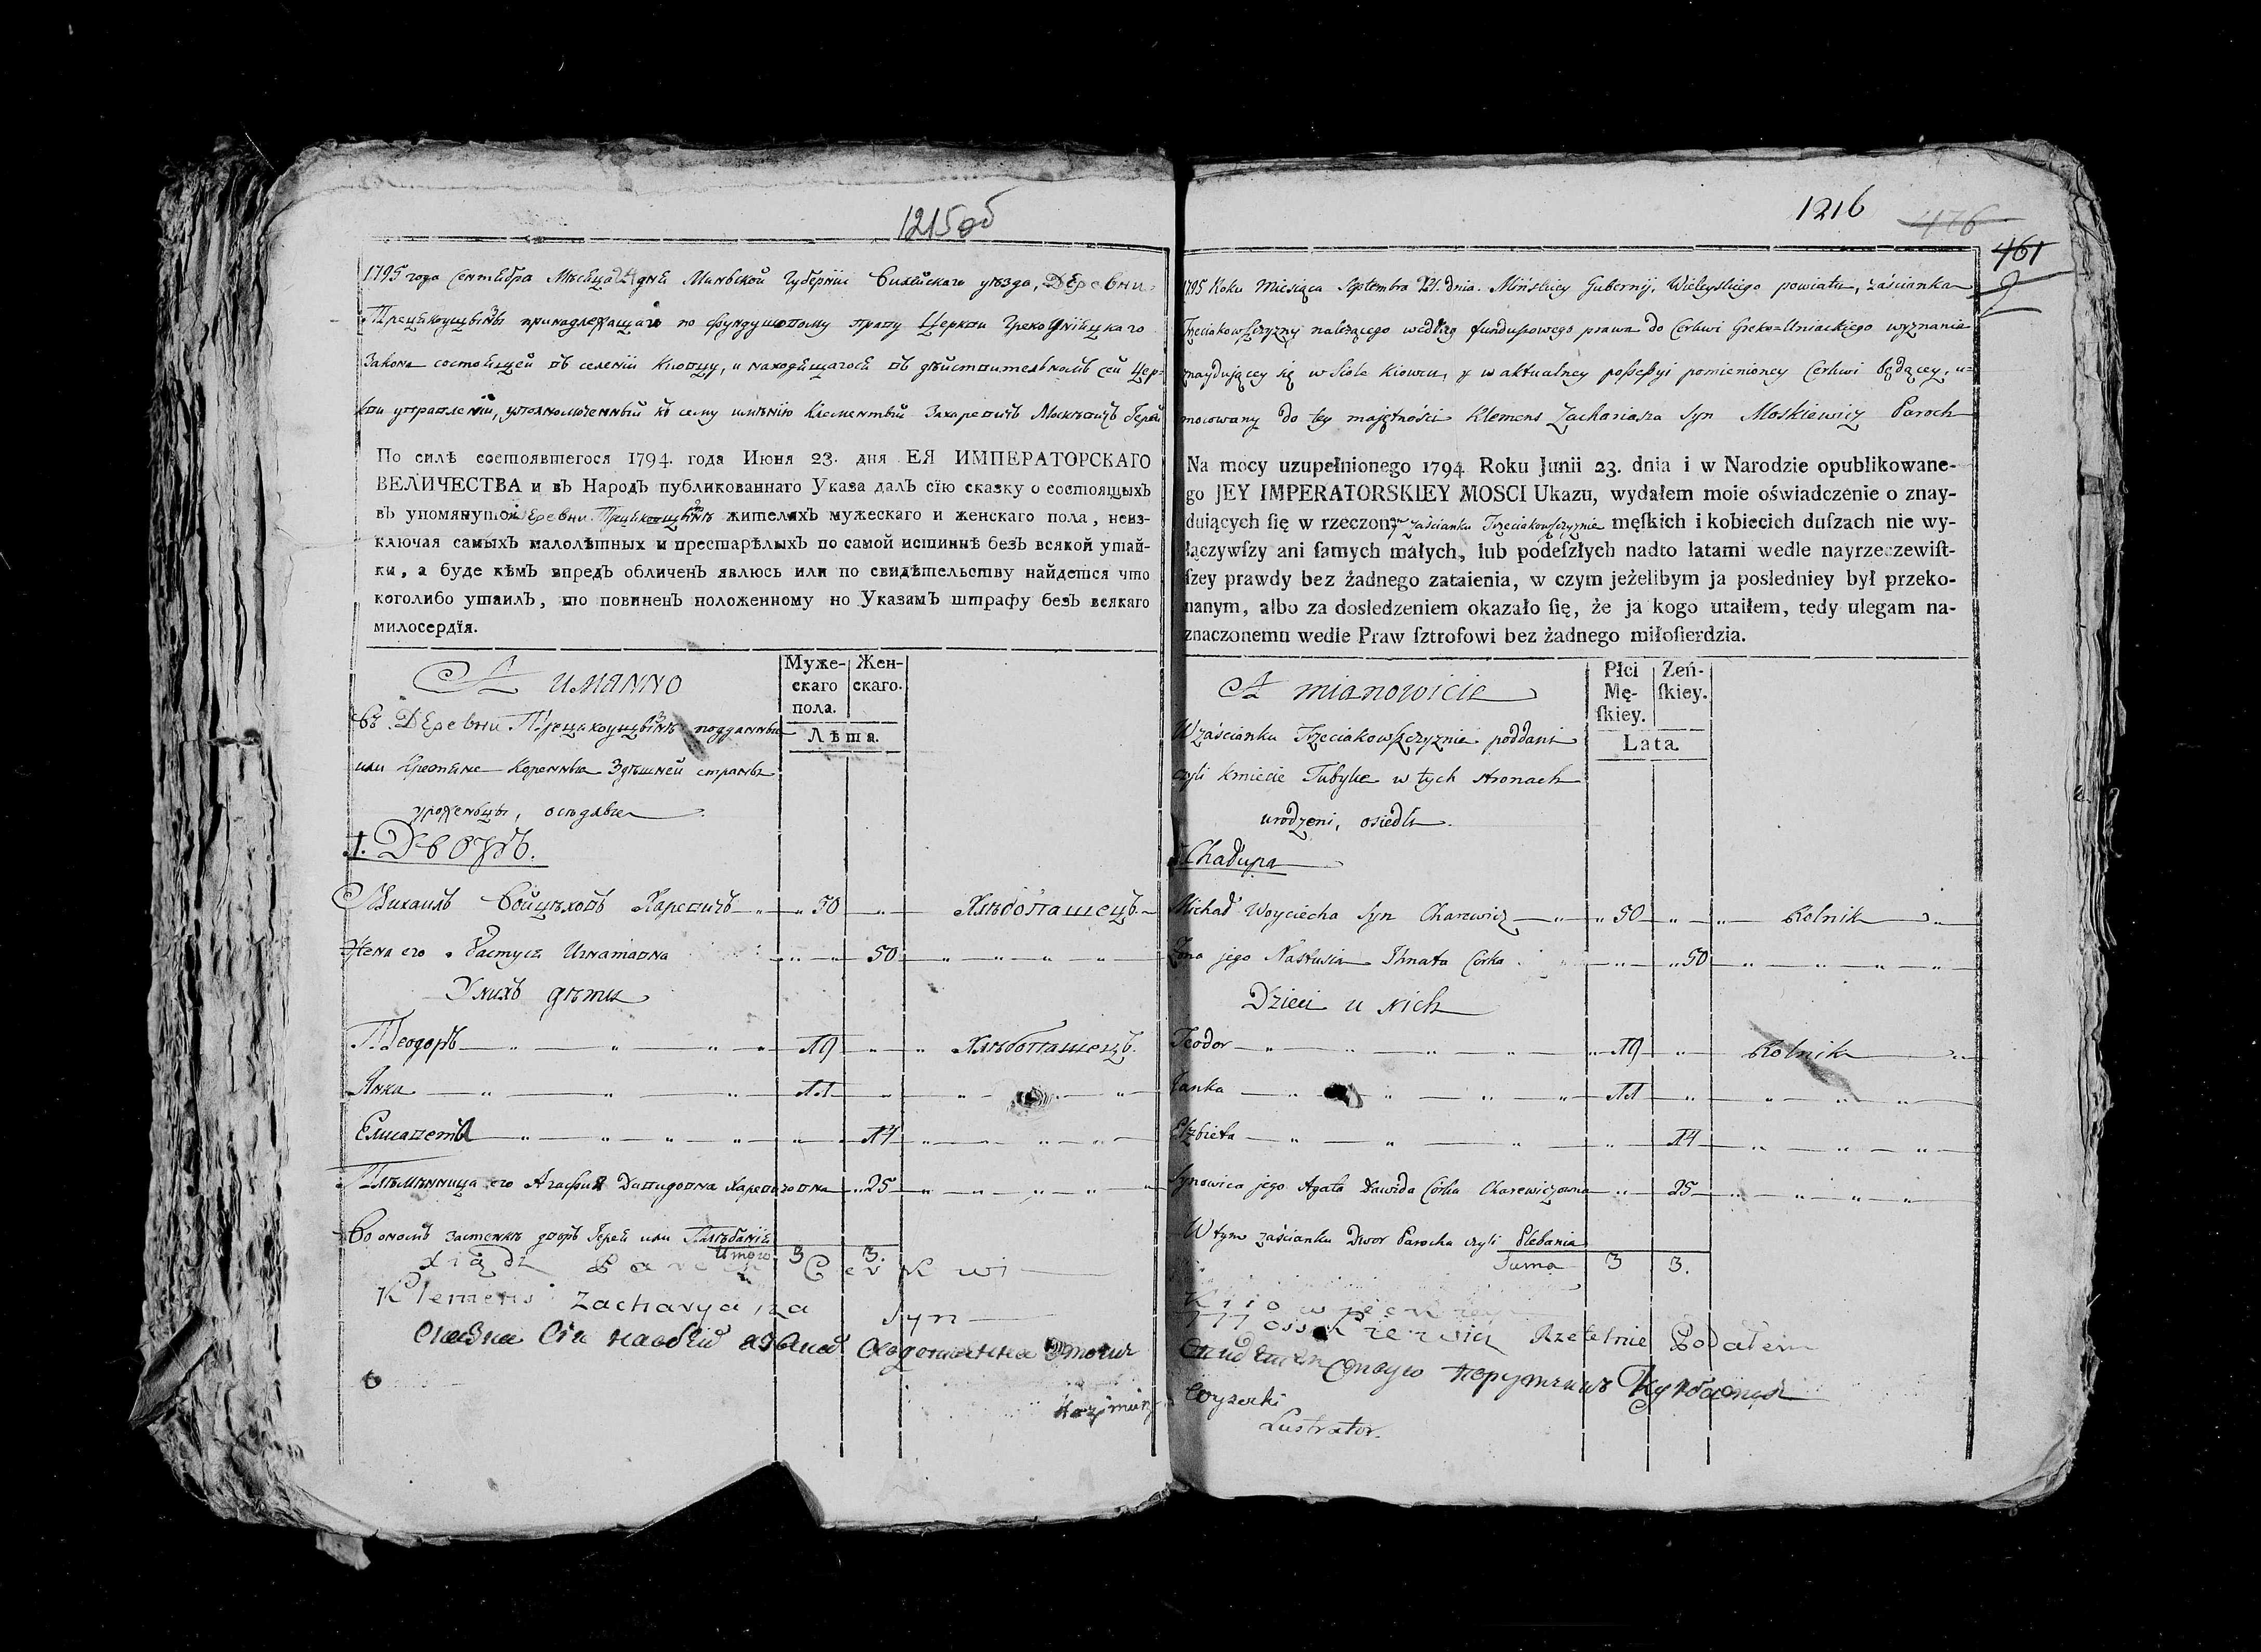 1215об
1795 года Сентября Мѣсяца 24 дня Миньской Губернїи Вилейскаго уѣзда, Деревни
принадлежащаго по фундушовому праву Церкви Грекоунїицкаго
Закона состоящей въ селенїи Кіовцу, и находящагося въ дѣйствительномъ сей Цер-
кви управленїи, уполномоченный къ сему имѣнїю Клементїй Захаревичъ Москѣвичъ Герей
По силѣ состоявшегося 1794. года Июня 23. дня ЕЯ ИМПЕРАТОРСКАГО
ВЕЛИЧЕСТВА и въ Народъ публикованнаго Указа далъ сїю сказку о состоящыхъ
въ упомянутой деревни жителяхъ мужескаго и женскаго пола, неиз-
ключая самыхъ малолѣтныхъ и престарѣлыхъ по самой истиннѣ безъ всякой утай-
ки, а буде кѣмъ впредъ обличенъ явлюсь или по свидѣтельству найдется что
коголибо утаилъ, то повиненъ положенному по Указамъ штрафу безъ всякаго
милосердїя.
А имянно
Муже-скаго пола.
Жен-скаго.
Лѣта.
Въ Деревни подданные
или Крестяне Коренные Здѣшней страны
уроженьцы, оседлые
1. Дворъ.
Михаилъ Войцѣховъ Харевичъ 50 Хлѣбопашецъ.
Жена его Настуся Игнатовна 50
У нихъ дѣти
Теодоръ 19 Хлѣбопашецъ.
Янка 11
Елисавета 14
Племѣнница его Агафия Давидовна Харевичовна 25
Во ономъ застенкѣ дворъ Герея или Плѣбанїя
Итого 3 3.
Xiądz Paroch Cerkwi
Klemens Zacharyasza Syn
Сказка Сія
Kazimierz
1216
476
461
2
1795 Roku Miesiąca Septembra 24. dnia. Mińskiey Gubernij, Wileyskiego powiatu, zaścianka
Trzeciakowszczyzny należącego według funduszowego prawa do Cerkwi Greko=Uniackiego wyznania
znaydującey się w Siole Kiowcu, y w aktualney possessyi pomienioney Cerkwi będącey, u=
mocowany do tey majętności Klemens Zachariasza Syn Moskiewicz Paroch
Na mocy uzupełnionego 1794 Roku Junii 23. dnia i w Narodzie opublikowane-
go JEY IMPERATORSKIEY MOSCI Ukazu, wydałem moie oświadczenie o znay-
duiących ſię w rzeczonym zaścianku Trzeciakowszczyznie męſkich i kobiecich duſzach nie wy-
łączywſzy ani ſamych małych, lub podeſzłych nadto latami wedle nayrzeczewiſt-
ſzey prawdy bez żadnego zataienia, w czym jeżelibym ja posledniey był przeko-
nanym, albo za dosledzeniem okazało ſię, że ja kogo utaiłem, tedy ulegam na-
znaczonemu wedle Praw ſztrofowi bez żadnego miłoſierdzia.
A mianowicie
Płci Mę-ſkiey.
Żeń-ſkiey.
Lata
W zaścianku Trzeciakowszczyznie poddani
czyli kmiecie Tubylce w tych stronach
urodzeni, osiedli
1. Chałupa
Michał Woyciecha Syn Charewicz 50 Rolnik
Żona jego Nastusia Ihnata Corka 50
Dzieci u nich
Teodor 19 Rolnik
Janka 11
Elżbieta 14
Synowica jego Agata Dawida Corka Charewiczowna 25
W tym zaścianku Dwor Parocha czyli Plebania
Suma 3 3.
Moskiewicz Rzetelnie Podałem
Порутчикъ
Lustrator.